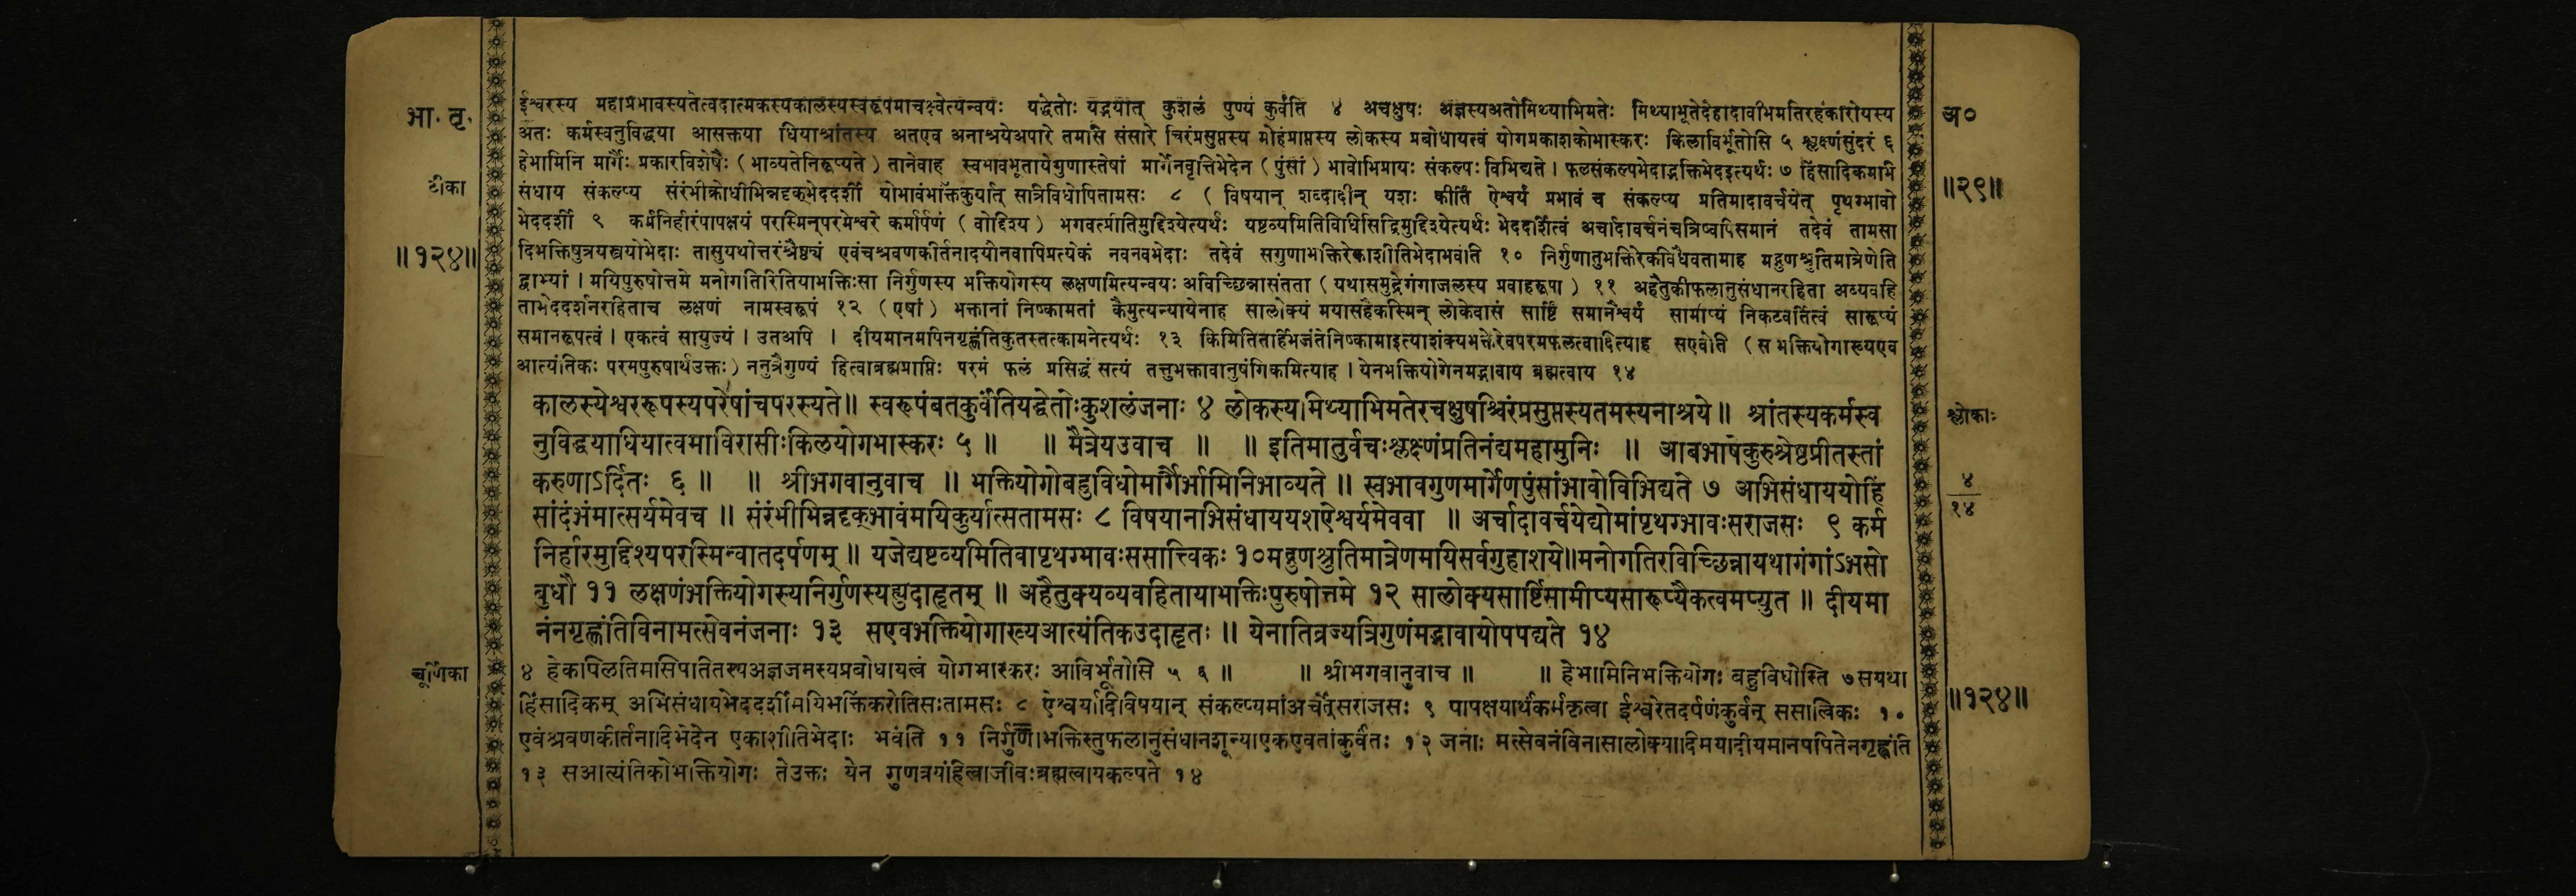 ईश्वरस्य महाप्रभावस्यतेत्वदात्मकस्यकालस्यस्वरूपमाचक्ष्वेत्यन्वयः यद्धेतोः यद्भयात् कुशलं पुण्यं कुर्वंति ४ अचक्षुषः अज्ञस्यअतोमिथ्याभिमतेः मिथ्याभूतेदेहादावभिमतिरहंकारोयस्य
भा. तृ.
अ०
अतः कर्मस्वनुविद्धया आसक्तया धियाश्रांतस्य अतएव अनाश्रयेअपारे तमसि संसारे चिरंप्रसुप्तस्य मोहंप्राप्तस्य लोकस्य प्रबोधायत्वं योगप्रकाशकोभास्करः किलाविर्भूतोसि ५ श्लक्ष्णंसुंदरं ६
हेभामिनि मार्गैः प्रकारविशेषैः (भाव्यतेनिरूप्यते) तानेवाह स्वभावभूतायेगुणास्तेषां मार्गेनवृत्तिभेदेन (पुंसां) भावोभिप्रायः संकल्पः विभिद्यते । फलसंकल्पभेदाद्भक्तिभेदइत्यर्थः ७ हिंसादिकमभि
टीका
॥२९॥
संधाय संकल्प्य संरंभीक्रोधीभिन्नदृक्भेददर्शी योभावंभक्तिंकुर्यात् सत्रिविधोपितामसः ८ (विषयान् शब्दादीन् यशः कीर्तिं ऐश्वर्यं प्रभावं च संकल्प्य प्रतिमादावर्चयेत् पृथग्भावो
भेददर्शी ९ कर्मनिर्हारंपापक्षयं परस्मिन्परमेश्वरे कर्मार्पणं (वोद्दिश्य) भगवत्प्रीतिमुद्दिश्येत्यर्थः यष्टव्यमितिविधिसिद्धिमुद्दिश्येत्यर्थः भेददर्शित्वं अर्चादावर्चनंचत्रिष्वपिसमानं तदेवं तामसा
॥१२४॥
दिभक्तिषुत्रयस्त्रयोभेदाः तासुयथोत्तरंश्रैष्ठ्यं एवंचश्रवणकीर्तनादयोनवापिप्रत्येकं नवनवभेदाः तदेवं सगुणाभक्तिरेकाशीतिभेदाभवंति १० निर्गुणातुभक्तिरेकविधैवतामाह मद्गुणश्रुतिमात्रेणेति
द्वाभ्यां । मयिपुरुषोत्तमे मनोगतिरितियाभक्तिःसा निर्गुणस्य भक्तियोगस्य लक्षणमित्यन्वयः अविच्छिन्नासंतता (यथासमुद्रेगंगाजलस्य प्रवाहरूपा) ११ अहैतुकीफलानुसंधानरहिता अव्यवहि
ताभेददर्शनरहिताच लक्षणं नामस्वरूपं १२ (एषां) भक्तानां निष्कामतां कैमुत्यन्यायेनाह सालोक्यं मयासहैकस्मिन् लोकेवासं सार्ष्टिं समानैश्वर्यं सामीप्यं निकटवर्तित्वं सारूप्यं
समानरूपत्वं । एकत्वं सायुज्यं । उतअपि । दीयमानमपिनगृह्णंतिकुतस्तत्कामनेत्यर्थः १३ किमितितर्हिभजंतेनिष्कामाइत्याशंक्यभक्तेरेवपरमफलत्वादित्याह सएवेति (स भक्तियोगाख्यएव
आत्यंतिकः परमपुरुषार्थउक्तः) ननुत्रैगुण्यं हित्वाब्रह्मप्राप्तिः परमं फलं प्रसिद्धं सत्यं तत्तुभक्तावानुषंगिकमित्याह । येनभक्तियोगेनमद्भावाय ब्रह्मत्वाय १४
कालस्येश्वररूपस्यपरेषांचपरस्यते॥ स्वरूपंबतकुर्वंतियद्धेतोःकुशलंजनाः ४ लोकस्यमिथ्याभिमतेरचक्षुषश्चिरंप्रसुप्तस्यतमस्यनाश्रये॥ श्रांतस्यकर्मस्व
श्लोकाः
नुविद्धयाधियात्वमाविरासीःकिलयोगभास्करः ५ ॥ ॥ मैत्रेयउवाच ॥ ॥ इतिमातुर्वचःश्लक्ष्णंप्रतिनंद्यमहामुनिः ॥ आबभाषेकुरुश्रेष्ठप्रीतस्तां
करुणाऽर्दितः ६ ॥ ॥ श्रीभगवानुवाच ॥ भक्तियोगोबहुविधोमार्गैर्भामिनिभाव्यते ॥ स्वभावगुणमार्गेणपुंसांभावोविभिद्यते ७ अभिसंधाययोहिं
४
१४
सांदंभंमात्सर्यमेवच ॥ संरंभीभिन्नदृक्भावंमयिकुर्यात्सतामसः ८ विषयानभिसंधाययशऐश्वर्यमेववा ॥ अर्चादावर्चयेद्योमांपृथग्भावःसराजसः ९ कर्म
निर्हारमुद्दिश्यपरस्मिन्वातदर्पणम् ॥ यजेद्यष्टव्यमितिवापृथग्भावःससात्त्विकः १०मद्गुणश्रुतिमात्रेणमयिसर्वगुहाशये॥मनोगतिरविच्छिन्नायथागंगांऽभसो
बुधौ ११ लक्षणंभक्तियोगस्यनिर्गुणस्यह्युदाहृतम् ॥ अहैतुक्यव्यवहितायाभक्तिःपुरुषोत्तमे १२ सालोक्यसार्ष्टिसामीप्यसारूप्यैकत्वमप्युत ॥ दीयमा
नंनगृह्णंतिविनामत्सेवनंजनाः १३ सएवभक्तियोगाख्यआत्यंतिकउदाहृतः ॥ येनातिव्रज्यत्रिगुणंमद्भावायोपपद्यते १४
चूर्णिका
४ हेकपिलतिमसिपतितस्यअज्ञजमस्यप्रबोधायत्वं योगभास्करः आविर्भूतोसि ५ ६ ॥ ॥ श्रीभगवानुवाच ॥ ॥ हेभामिनिभक्तियोगः बहुविधोस्ति ७सयथा
हिंसादिकम् अभिसंधायभेददर्शीमयिभक्तिंकरोतिसःतामसः ८ ऐश्वर्यादिविषयान् संकल्प्यमांअर्चेत्सराजसः ९ पापक्षयार्थंकर्मकृत्वा ईश्वरेतदर्पणंकुर्वन् ससात्विकः १०
॥१२४॥
एवंश्रवणकीर्तनादिभेदेन एकाशीतिभेदाः भवंति ११ निर्गुणाभक्तिस्तुफलानुसंधानशून्याएकएवतांकुर्वंतः १२ जनाः मत्सेवनंविनासालोक्यादिमयादीयमानमपितेनगृह्णंति
१३ सआत्यंतिकोभक्तियोगः तेउक्तः येन गुणत्रयंहित्वाजीवःब्रह्मत्वायकल्पते १४